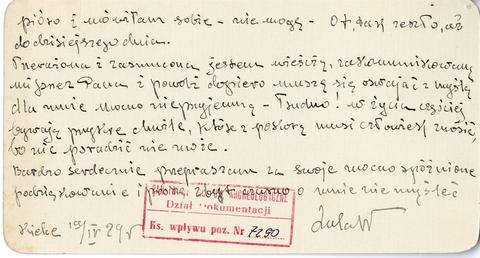 pióro i mówiłam sobie – nie mogę – Ot, tak zeszło, aż
do dzisiejszego dnia.
Przerażona i zasmucona jestem wieścią, zakomunikowaną
mi przez Pana i powoli dopiero muszę się oswajać z myślą
dla mnie mocno nieprzyjemną – Trudno! w życiu częściej
bywają przykre chwile, które z pokorą musi człowiek znosić,
bo nic poradzić nie może.
Bardzo serdecznie przepraszam za swoje mocno spóźnione
podziękowanie i proszę zbyt czarno o mnie nie myśleć
ARCHEOLOGICZNE
Dział Dokumentacji
Ks. wpływu poz. Nr 7290
Kielce 19/IV 29 r